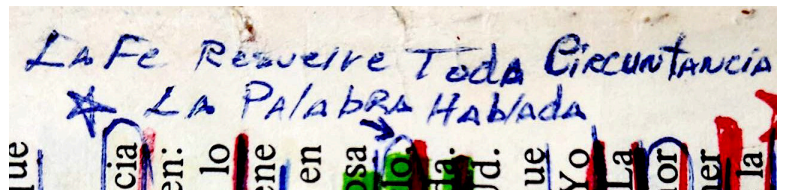 La Fe Resuelve Toda Circuntancia
* La Palabra Hablada
que cia en: lo ene en osa do, da: Ud. ue Yo La or er la